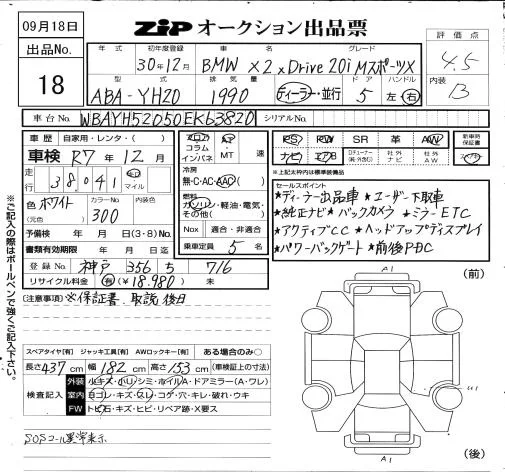 09月18日
ZiP オークション出品票
出品No.
18
年式 初年度登録 車名 グレード
30年12月 BMW X2 xDrive 20i MスポーツX
型式 排気量 ドア ハンドル
ABA-YH20 1990 ディーラー・並行 5 左・右
評価点
4.5
内装
B
車台No. WBAYH52050EK63820 シリアルNo.
車歴 自家用・レンタ・( )
車検 R7年12月
走行 38,041 km マイル
色 ホワイト カラーNo. 300 内装色
(元色)
予備検 年 月 日(3・8)No.
書類有効期限 年 月 日迄
登録No. 神戸 356 ち 716
リサイクル料金 有(¥18,980) 未
フロア AT
コラム
インパネ MT 速
冷房
無・C・AC・AAC( )
燃料
ガソリン・軽油・電気・
その他( )
Nox 適合・非適合
乗車定員 5 名
PS PW SR 革 AW
ナビ エアB 社外ナビ 社外AW
新車時保証書
※上記太枠内は標準装備品
セールスポイント
★ディーラー出品車 ★ユーザー下取車
★純正ナビ ★バックカメラ ★ミラーETC
★アクティブCC ★ヘッドアップディスプレイ
★パワーバックゲート ★前後PDC
(注意事項) ※保証書、取説後日
※ご記入の際はボールペンで強くご記入下さい。
スペアタイヤ[有] ジャッキ工具[有] AWロックキー[有] ある場合のみ○
長さ437cm 幅182cm 高さ153cm (車検証上の寸法)
検査記入
外装 小キズ・小凹・シミ・ホイルA・ドアミラー(A・ワレ)
室内 ヨゴレ・キズ・スレ・コゲ・穴・キレ・破れ・ウキ
FW トビ石・キズ・ヒビ・リペア跡・X要ス
SOSコール異常表示
(前)
A1
U1
A1
(後)